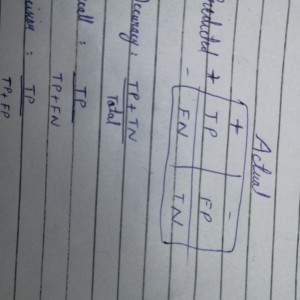 Actual
+ -
Predicted + TP FP
- FN TN
Accuracy : TP + TN
Total
call : TP
TP + FN
TP
TP + FP